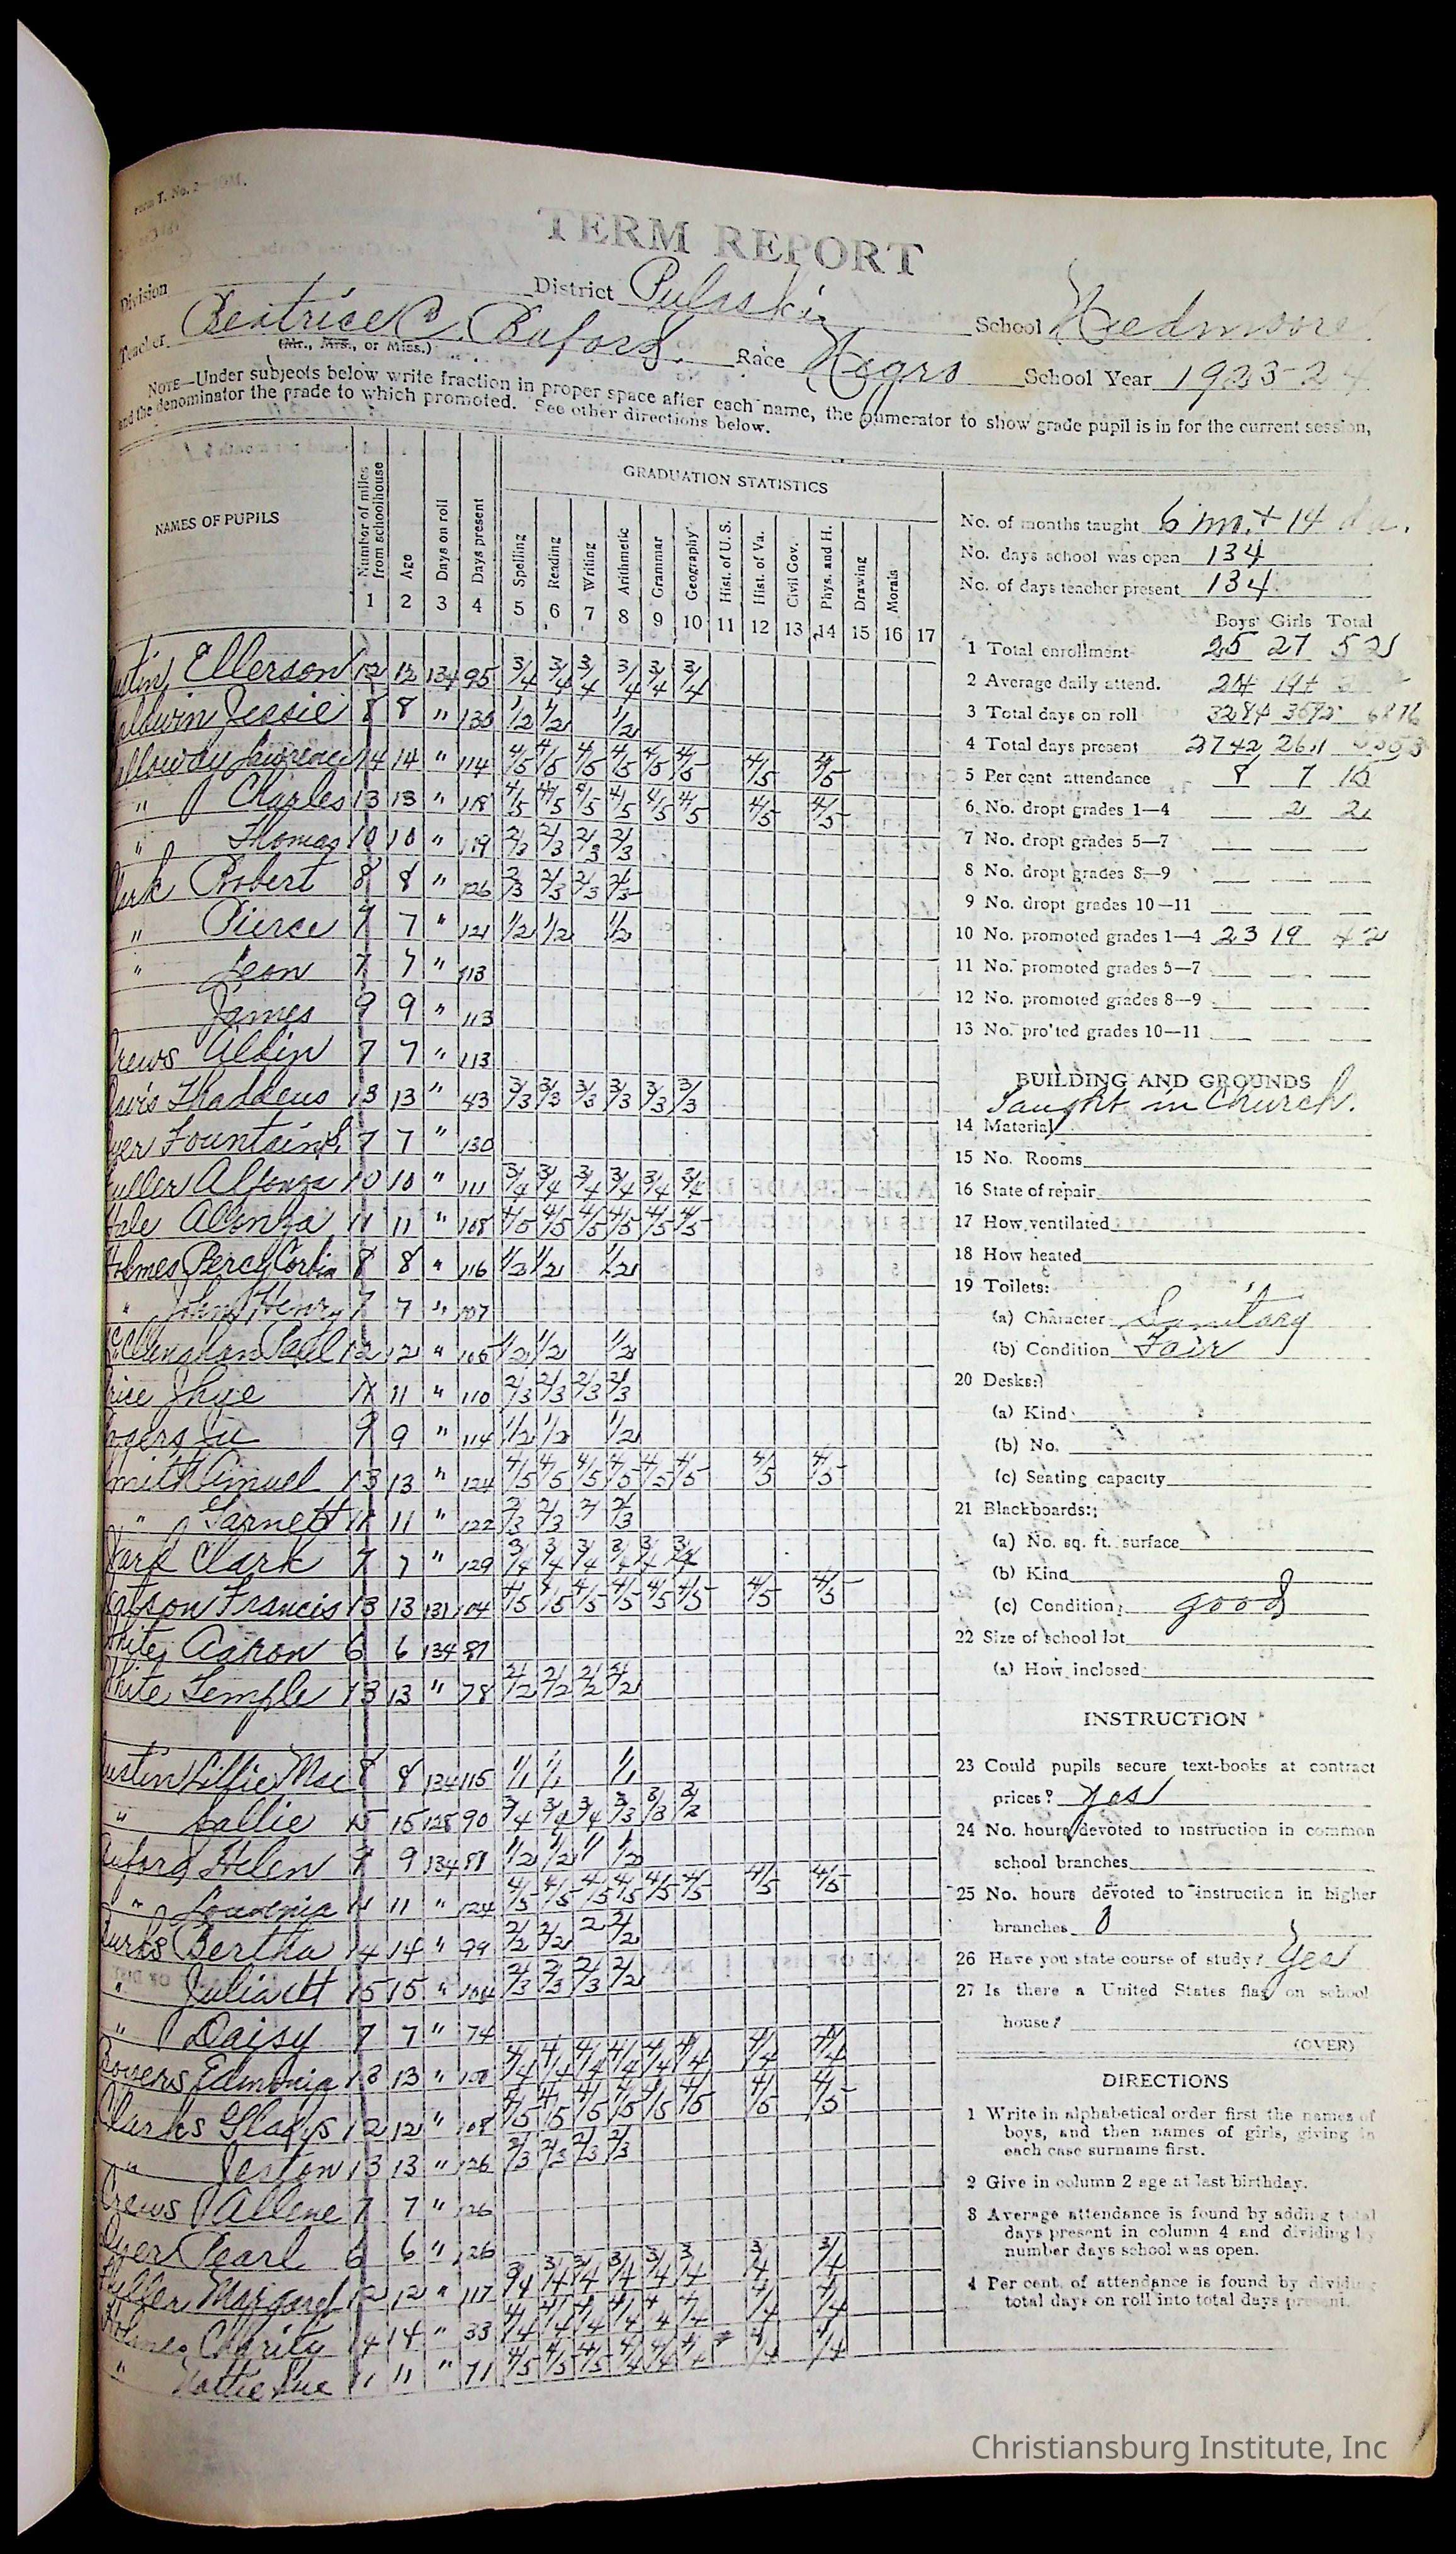 Form T. No. 2
TERM REPORT
Division District Pulaski School
Teacher Beatrice C. Buford Race Negro School Year 1923-24
(Mr., Mrs., or Miss.)
NOTE—Under subjects below write fraction in proper space after each name, the numerator to show grade pupil is in for the current session,
and the denominator the grade to which promoted. See other directions below.
NAMES OF PUPILS
Number of miles from schoolhouse
Age
Days on roll
Days present
GRADUATION STATISTICS
Spelling Reading Writing Arithmetic Grammar Geography Hist. of U.S. Hist. of Va. Civil Gov. Phys. and H. Drawing Morals
1 2 3 4 5 6 7 8 9 10 11 12 13 14 15 16 17
Ellerson 12 12 134 95 3/4 3/4 3/4 3/4 3/4 3/4
Jessie 8 8 " 1/2 1/2 1/2
14 14 " 114 4/5 4/5 4/5 4/5 4/5 4/5 4/5 4/5
" Charles 13 13 " 118 4/5 4/5 4/5 4/5 4/5 4/5 4/5 4/5
" Thomas 10 10 " 119 2/3 2/3 2/3 2/3
Robert 8 8 " 126 2/3 2/3 2/3 2/3
" Pierce 7 7 " 121 1/2 1/2 1/2
" Leon 7 7 " 113
James 9 9 " 113
Crews 7 7 " 113
Davis Thaddeus 13 13 " 43 3/3 3/3 3/3 3/3 3/3 3/3
Dyer Fountain 7 7 " 130
Fuller Alfonza 10 10 " 111 3/4 3/4 3/4 3/4 3/4 3/4
Hale Alonza 11 11 " 108 4/5 4/5 4/5 4/5 4/5 4/5
Holmes Percy 8 8 " 116 1/2 1/2 1/2
" John Henry 7 7 " 107
12 12 " 105 1/2 1/2 1/2
Price 11 11 " 110 2/3 2/3 2/3 2/3
Rogers 9 9 " 114 1/2 1/2 1/2
Smith 13 13 " 124 4/5 4/5 4/5 4/5 4/5 4/5 4/5 4/5
" Garnett 11 11 " 122 2/3 2/3 2/3
Clark 7 7 " 129 3/4 3/4 3/4 3/4 3/4 3/4
Watson Francis 13 13 131 104 4/5 4/5 4/5 4/5 4/5 4/5 4/5 4/5
White Aaron 6 6 134 87
White Temple 13 13 " 78 2/2 2/2 2/2 2/2
Austin Lillie Mae 8 8 134 115 1/1 1/1 1/1
" Sallie 15 15 128 90 3/4 3/4 3/4 3/3 3/3
Buford Helen 9 9 134 1/2 1/2 1/2
" Louvenia 11 11 " 124 4/5 4/5 4/5 4/5 4/5 4/5 4/5 4/5
Burks Bertha 14 14 " 99 2/2 2/2 2 2/2
" 15 15 " 104 2/3 2/3 2/3 2/2
" Daisy 7 7 " 74
Bowers Edmonia 13 13 " 100 4/4 4/4 4/4 4/4 4/4 4/4 4/4 4/4
Clarks Gladys 12 12 " 108 4/5 4/5 4/5 4/5 4/5 4/5 4/5 4/5
" 13 13 " 126 2/3 2/3 2/3 2/3
Crews Allene 7 7 " 126
Dyer Pearl 6 6 " 126
Fuller Margaret 12 12 " 117 3/4 3/4 3/4 3/4 3/4 3/4 3/4
Holmes Charity 14 14 " 33 4/4 4/4 4/4 4/4 4/4 4/4 4/4 4/4
" Hattie Sue 11 11 " 71 4/5 4/5 4/5 4/4 4/4
No. of months taught 6 m. + 14 da.
No. days school was open 134
No. of days teacher present 134
Boys Girls Total
1 Total enrollment 25 27 52
2 Average daily attend.
3 Total days on roll 3284 3592 6876
4 Total days present 2742 2611
5 Per cent attendance 8 7 15
6 No. dropt grades 1—4 2 2
7 No. dropt grades 5—7
8 No. dropt grades 8—9
9 No. dropt grades 10—11
10 No. promoted grades 1—4 23 19 42
11 No. promoted grades 5—7
12 No. promoted grades 8—9
13 No. pro'ted grades 10—11
BUILDING AND GROUNDS
Taught in Church.
14 Material
15 No. Rooms
16 State of repair
17 How ventilated
18 How heated
19 Toilets:
(a) Character Sanitary
(b) Condition Fair
20 Desks:
(a) Kind
(b) No.
(c) Seating capacity
21 Blackboards:
(a) No. sq. ft. surface
(b) Kind
(c) Condition good
22 Size of school lot
(a) How inclosed
INSTRUCTION
23 Could pupils secure text-books at contract
prices? Yes
24 No. hours devoted to instruction in common
school branches
25 No. hours devoted to instruction in higher
branches 0
26 Have you state course of study? Yes
27 Is there a United States flag on school
house?
(OVER)
DIRECTIONS
1 Write in alphabetical order first the names of
boys, and then names of girls, giving in
each case surname first.
2 Give in column 2 age at last birthday.
3 Average attendance is found by adding total
days present in column 4 and dividing by
number days school was open.
4 Per cent. of attendance is found by dividing
total days on roll into total days present.
Christiansburg Institute, Inc